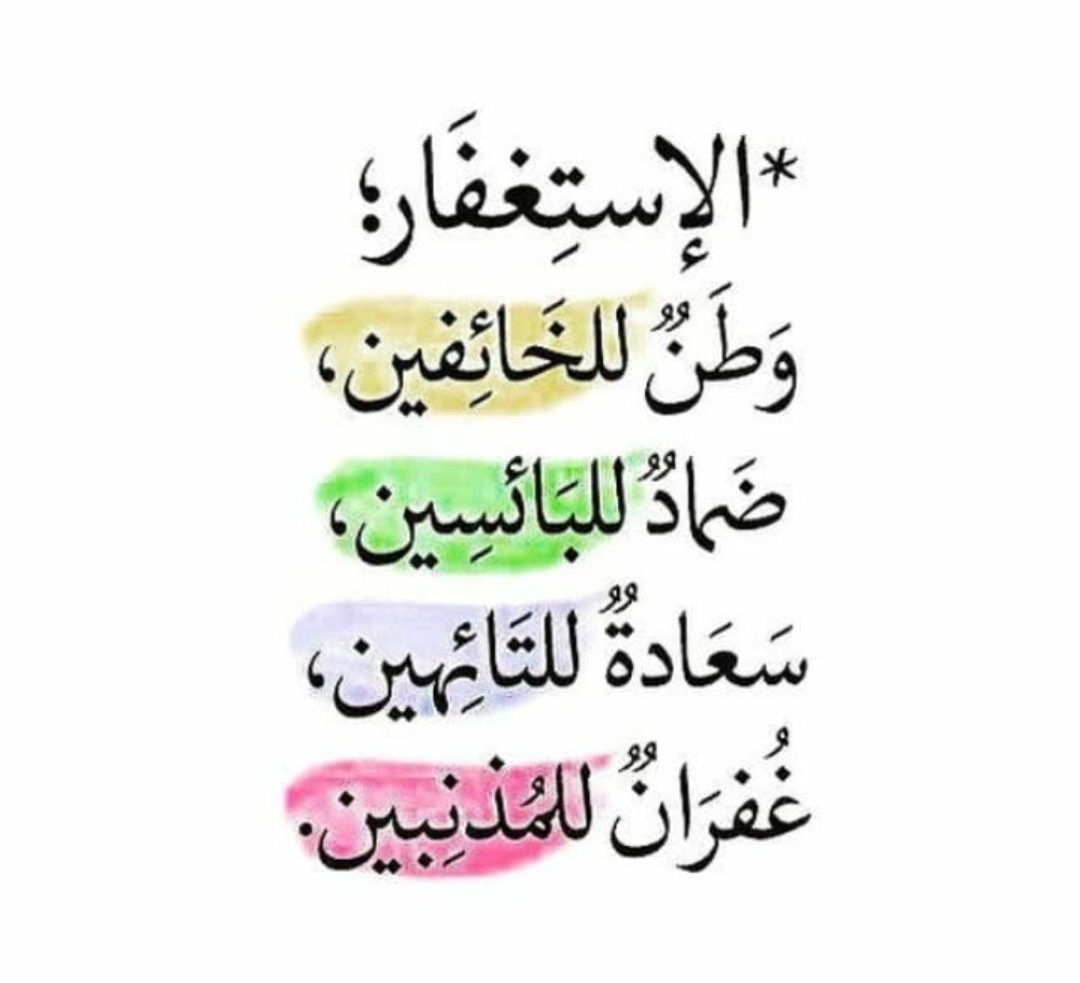 *الإستِغفَار؛
وَطَنٌ للخَائِفين،
ضَمادٌ للبَائسِين،
سَعَادةٌ للتَائِهين،
غُفرَانٌ للمُذنِبين.